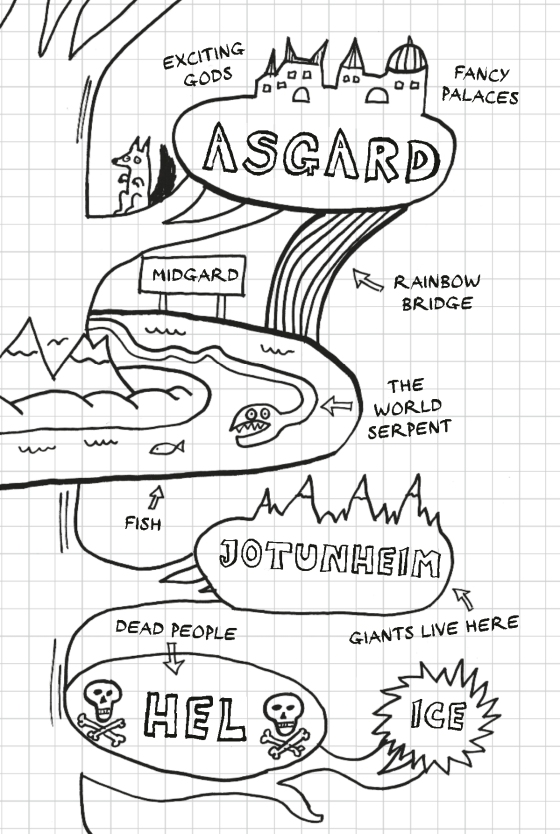 EXCITING
GODS
FANCY
PALACES
ASGARD
MIDGARD
RAINBOW
BRIDGE
THE
WORLD
SERPENT
FISH
JOTUNHEIM
GIANTS LIVE HERE
DEAD PEOPLE
HEL
ICE